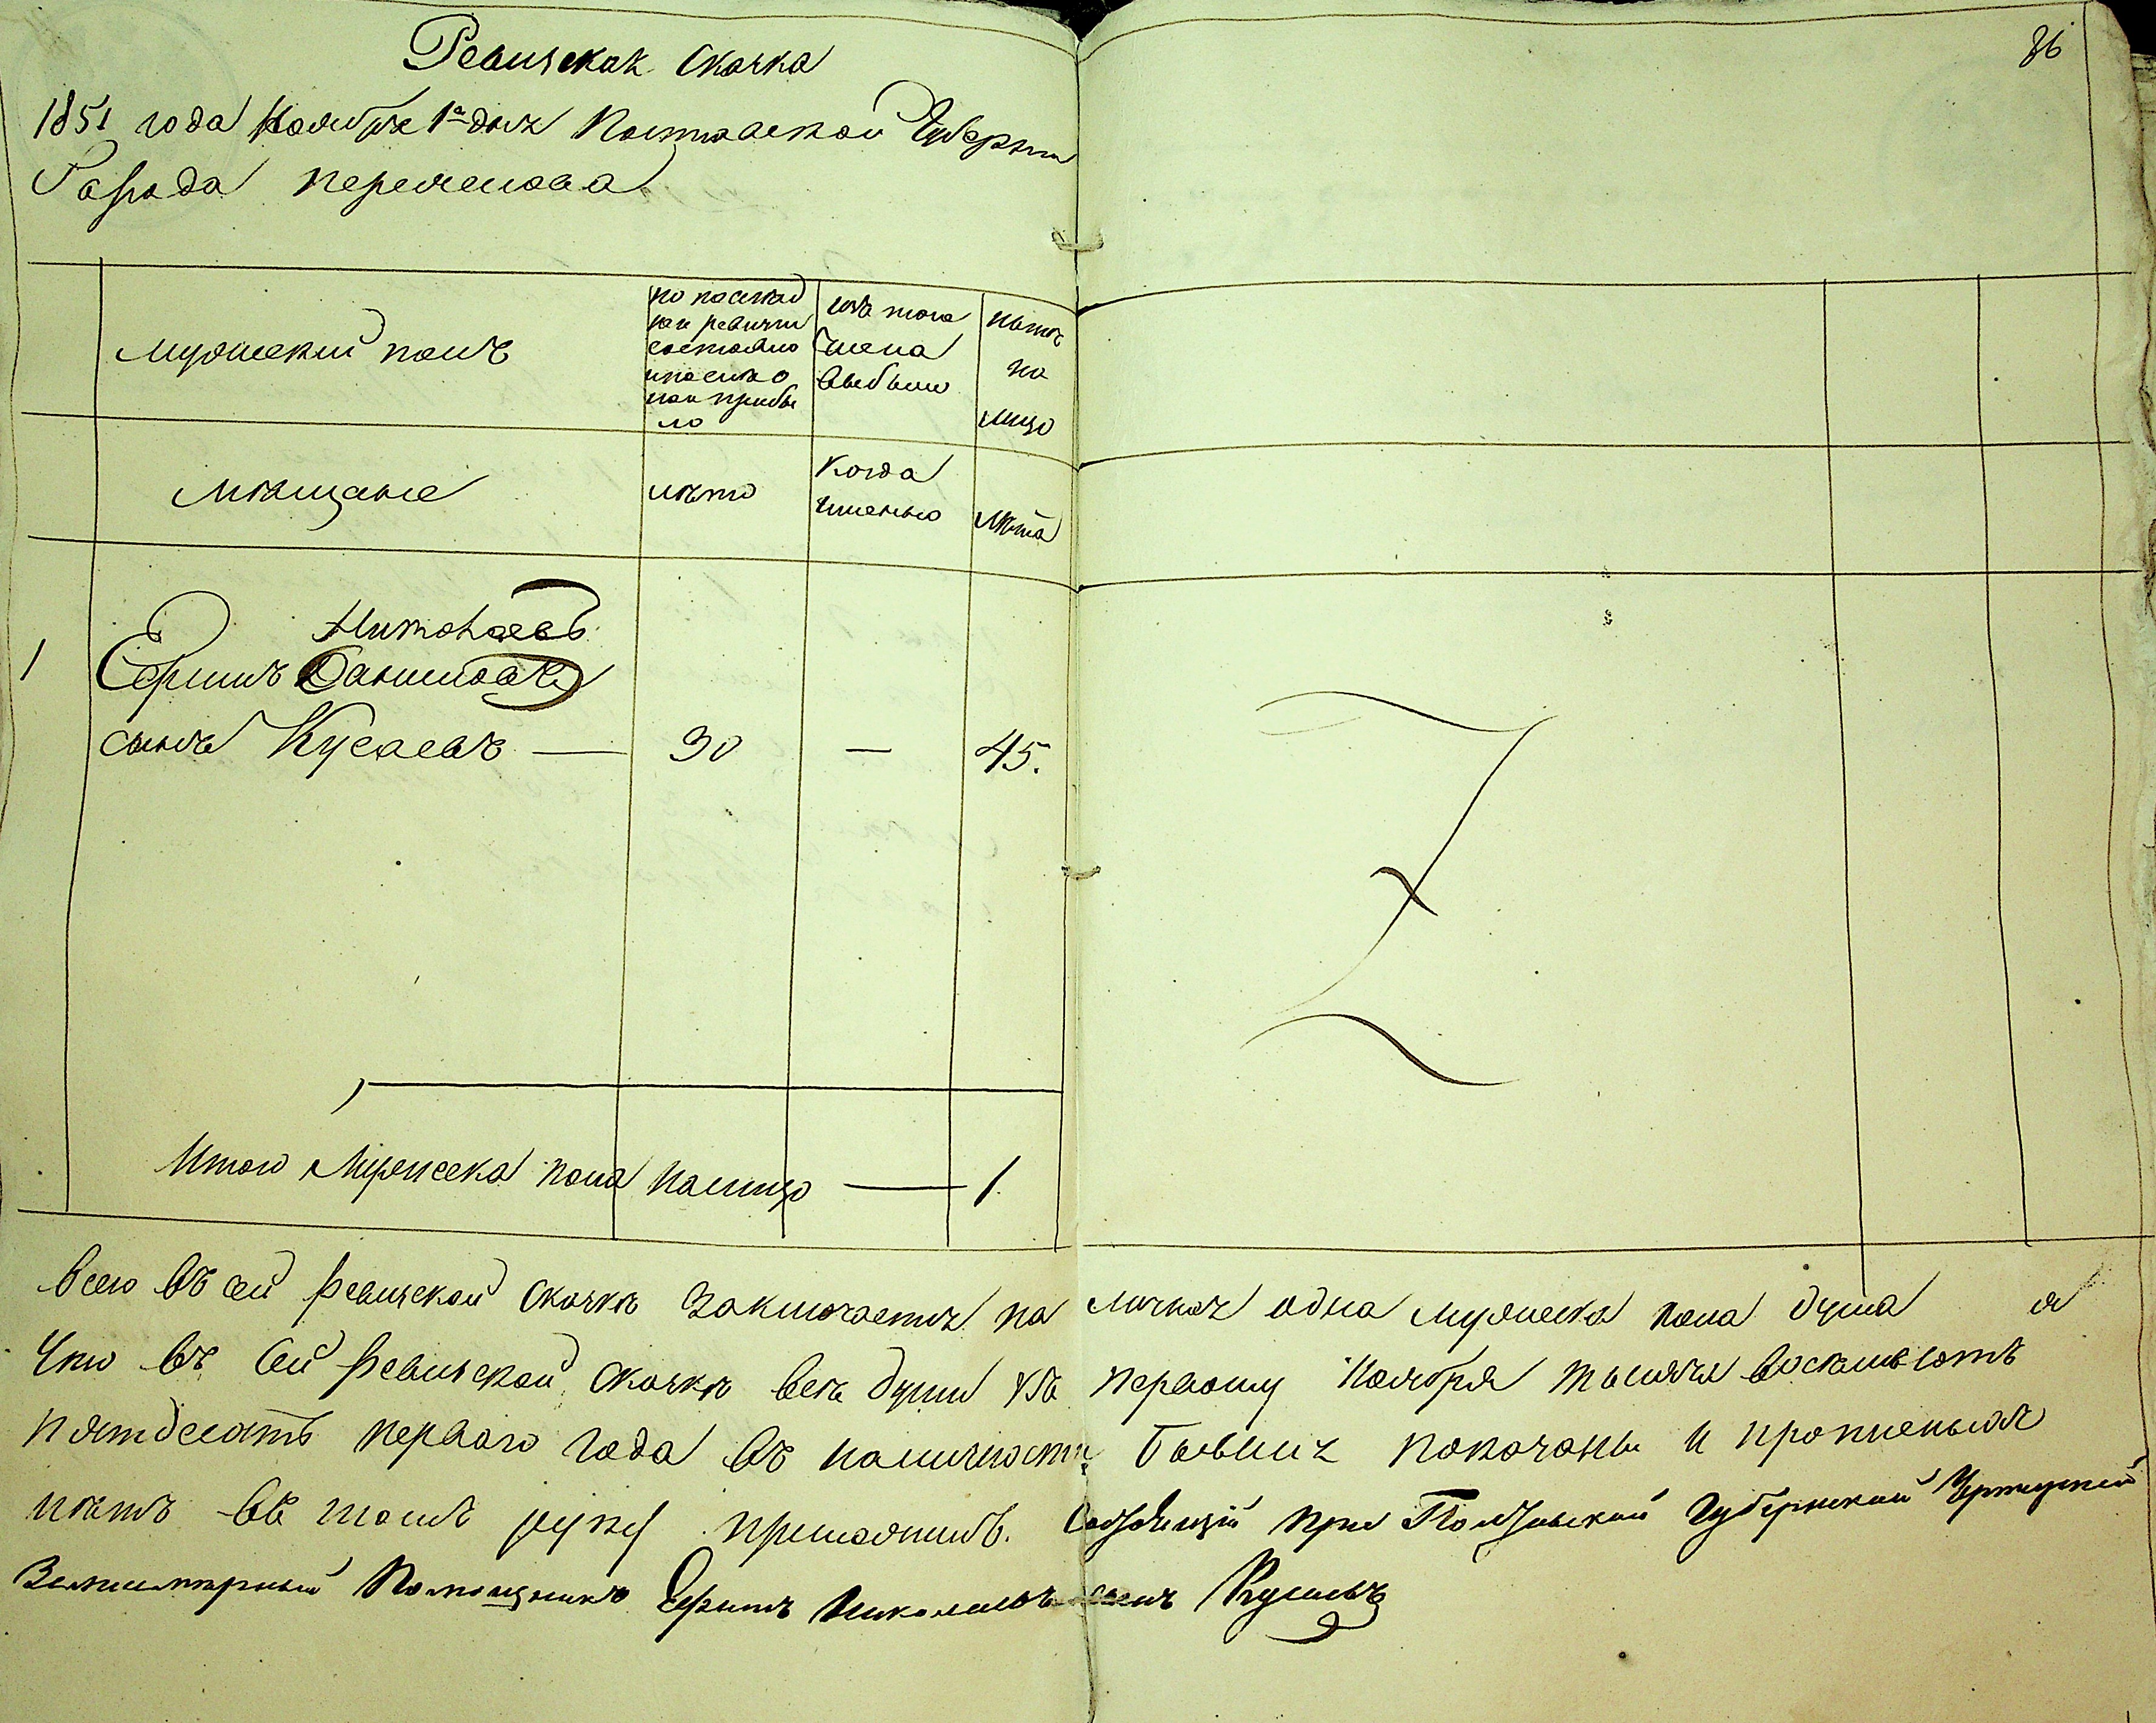 Ревизская Сказка
86
1851 года Ноября 1го дня Полтавской Губернии
Города Переяслова
Мужеский полъ
по послед
ней ревизiи
состояло
и после о
ной прибы
ло
изъ того
числа
выбыло
ныне
на
лицо
Мещане
лето
когда
именно
Лета
Николаевъ
1 Ефимъ Даниловъ
сынъ Кусаевъ — 30 — 45.
Итого Мужеска пола налицо — 1.
Всего въ сей ревизской Сказке заключается на личная одна мужеска пола душа а
Что въ сей Ревизской Сказке все души къ первому Ноября тысяча восемьсотъ
пятдесятъ перваго года въ наличности бывшия показаны и прописныхъ
нетъ въ томъ руку приложилъ. Состоящiй при Полтавской Губернской Чертежной
Землемерный Помощникъ Ефимъ Николаевъ сынъ Кусаевъ